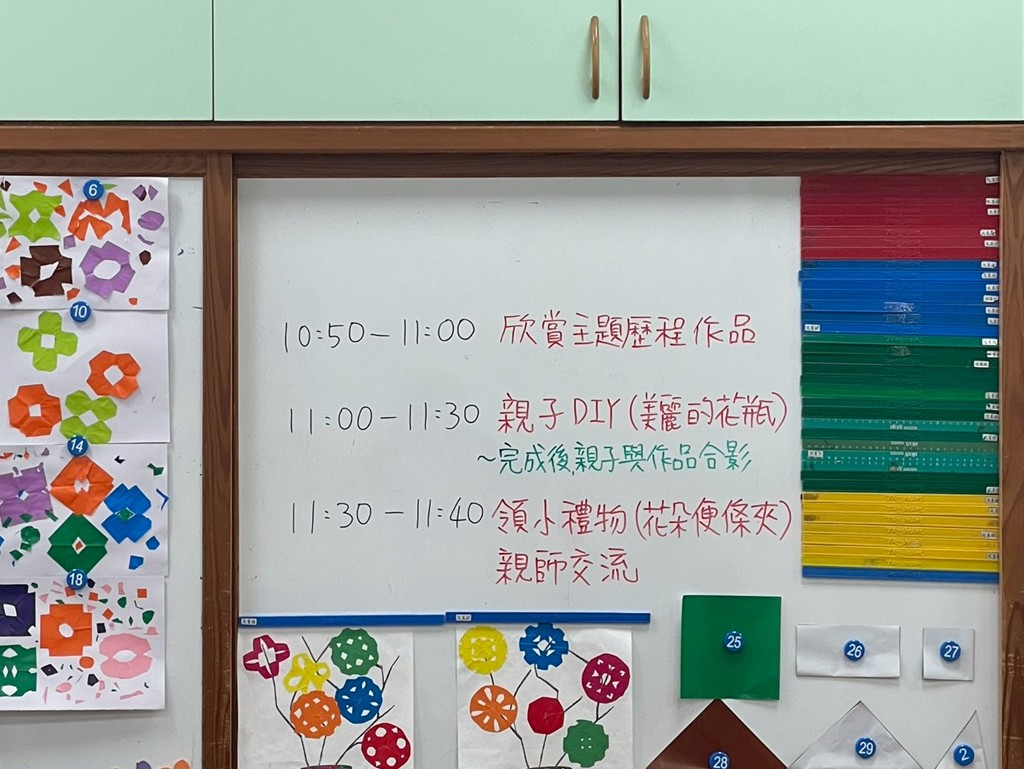 10:50-11:00 欣賞主題歷程作品
11:00-11:30 親子DIY(美麗的花瓶)
~完成後親子與作品合影
11:30-11:40 領小禮物(花朵便條夾)
親師交流
6
10
14
18
25
26
27
28
29
2